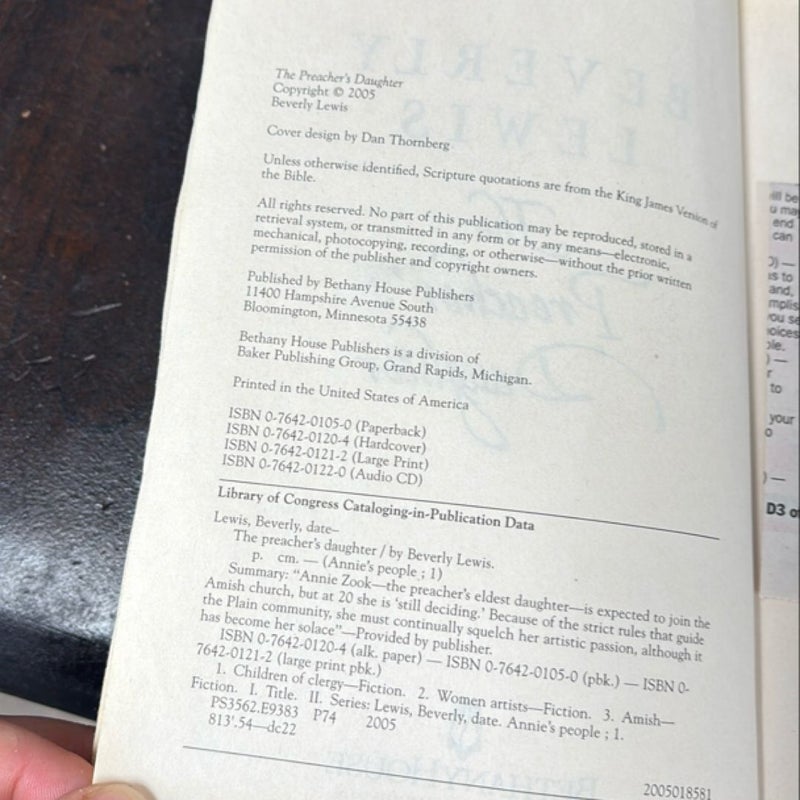 The Preacher's Daughter
Copyright © 2005
Beverly Lewis
Cover design by Dan Thornberg
Unless otherwise identified, Scripture quotations are from the King James Version of
the Bible.
All rights reserved. No part of this publication may be reproduced, stored in a
retrieval system, or transmitted in any form or by any means—electronic,
mechanical, photocopying, recording, or otherwise—without the prior written
permission of the publisher and copyright owners.
Published by Bethany House Publishers
11400 Hampshire Avenue South
Bloomington, Minnesota 55438
Bethany House Publishers is a division of
Baker Publishing Group, Grand Rapids, Michigan.
Printed in the United States of America
ISBN 0-7642-0105-0 (Paperback)
ISBN 0-7642-0120-4 (Hardcover)
ISBN 0-7642-0121-2 (Large Print)
ISBN 0-7642-0122-0 (Audio CD)
Library of Congress Cataloging-in-Publication Data
Lewis, Beverly, date–
The preacher's daughter / by Beverly Lewis.
p. cm. — (Annie's people ; 1)
Summary: "Annie Zook—the preacher's eldest daughter—is expected to join the
Amish church, but at 20 she is 'still deciding.' Because of the strict rules that guide
the Plain community, she must continually squelch her artistic passion, although it
has become her solace"—Provided by publisher.
ISBN 0-7642-0120-4 (alk. paper) — ISBN 0-7642-0105-0 (pbk.) — ISBN 0-
7642-0121-2 (large print pbk.)
1. Children of clergy—Fiction. 2. Women artists—Fiction. 3. Amish—
Fiction. I. Title. II. Series: Lewis, Beverly, date. Annie's people ; 1.
PS3562.E9383 P74 2005
813'.54—dc22
2005018581
BEVERLY
LEWIS
The
Preacher's
Daughter
BETHANYHOUSE
end
can
is to
and,
to
your
D3